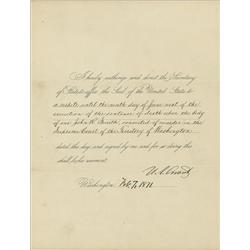 I hereby authorize and direct the Secretary
of State to affix the Seal of the United States to
a respite until the ninth day of June next of the
execution of the sentence of death upon the body
of one John W. Smith, convicted of murder in the
Supreme Court of the Territory of Washington
dated this day and signed by me and for so doing this
shall be his warrant.
U. S. Grant
Washington, Feb. 7, 1871